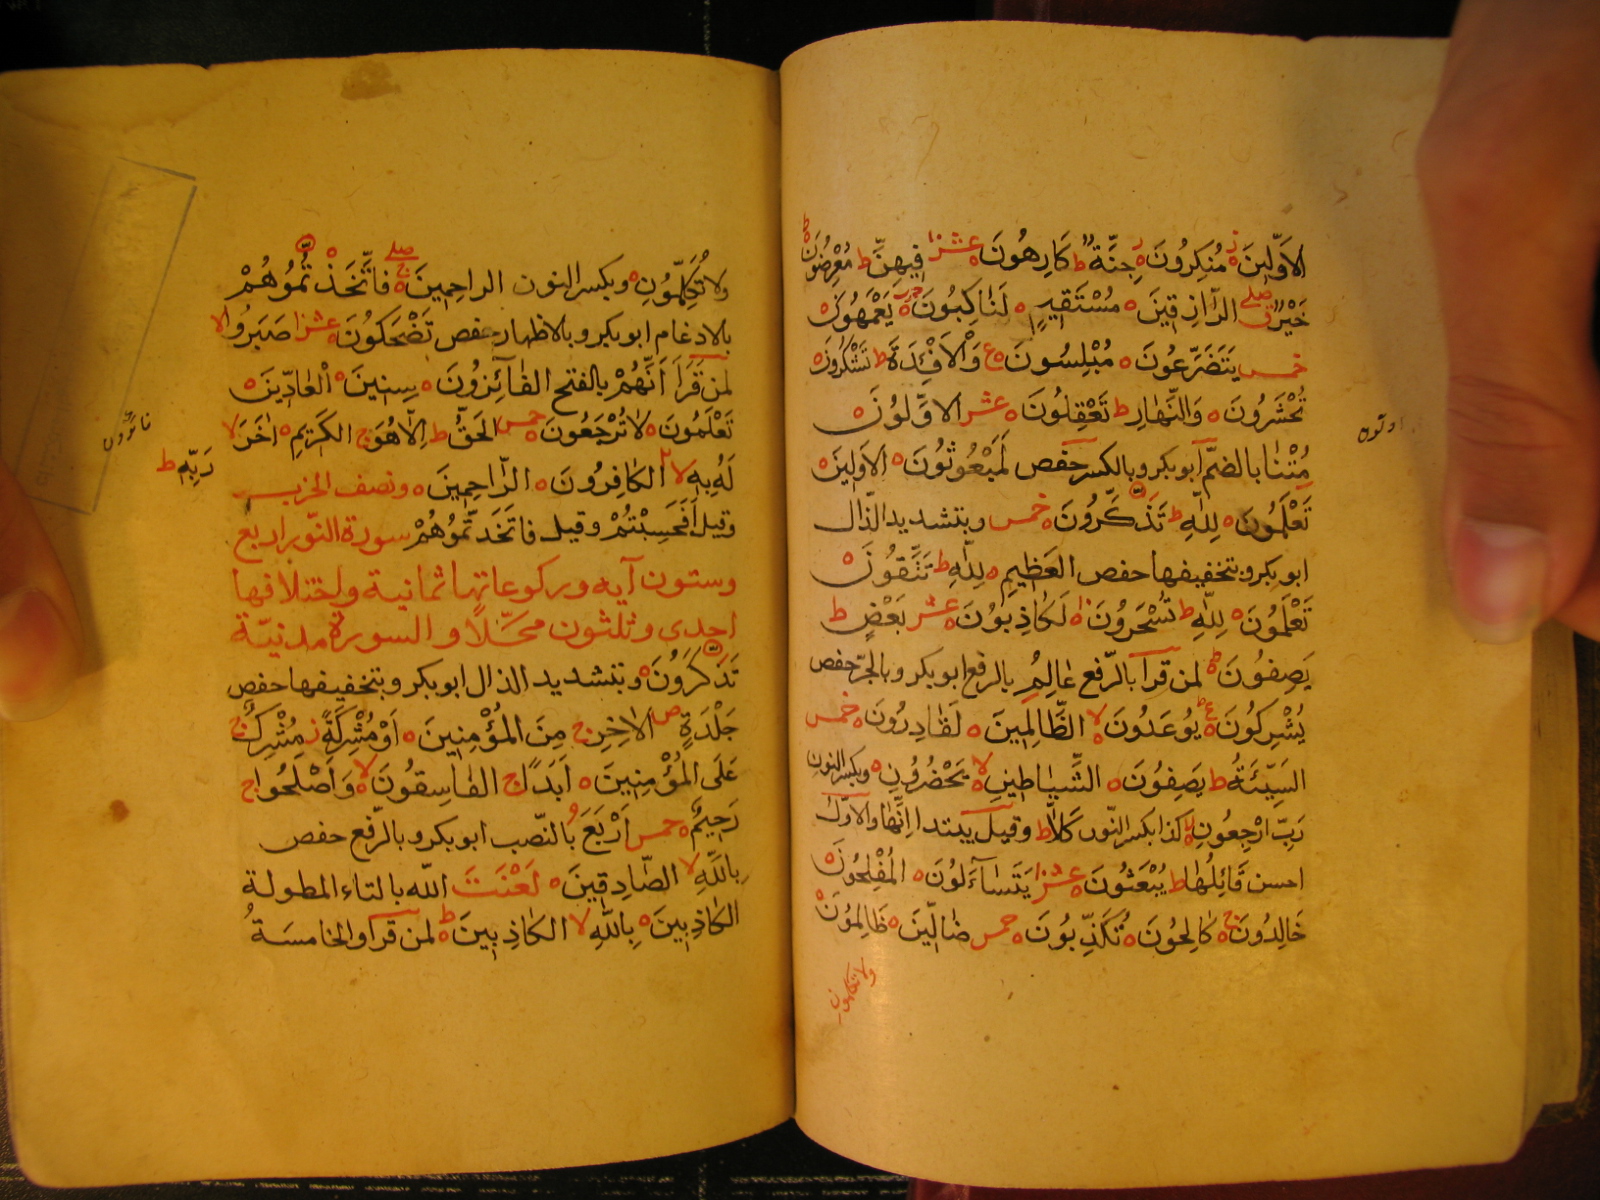 الاَوَّلِينَ ز مُنكِرُونَ ز جِنَّةٌ ط كَارِهُونَ ه عشر فِيهِنَّ ط مُعْرِضُونَ ط
خَيْرٌ ق صلے الرَّازِقِينَ ه مُسْتَقِيمٍ ه لَنَاكِبُونَ ه حزب يَعْمَهُونَ ه
خمس يَتَضَرَّعُونَ ه مُبْلِسُونَ ه ع وَالْاَفْئِدَةَ ط تَشْكُرُونَ ه
تُحْشَرُونَ ه وَالنَّهَارِ ط تَعْقِلُونَ ه عشر الاَوَّلُونَ ه
مُتْنَا بالضمّ ابوبكر وبالكسر حفص لَمَبْعُوثُونَ ه الاَوَّلِينَ ه
تَعْلَمُونَ ه لِلّٰهِ ط تَذَّكَّرُونَ ه خمس وبتشديد الذّال
ابوبكر وبتخفيفها حفص العَظِيمِ ه لِلّٰهِ ط تَتَّقُونَ ه
تَعْلَمُونَ ه لِلّٰهِ ط تُسْحَرُونَ ه لَكَاذِبُونَ ه عشر بَعْضٍ ط
يَصِفُونَ ه لمن قرأ بالرّفع عَالِمُ بالرفع ابوبكر وبالجرّ حفص
يُشْرِكُونَ ه ع يُوعَدُونَ لا الظَّالِمِينَ ه لَقَادِرُونَ ه خمس
السَّيِّئَةَ ط يَصِفُونَ ه الشَّيَاطِينِ لا يَحْضُرُونِ ه وبكسر النون
رَبِّ ارْجِعُونِ لا كذا بكسر النّون كَلَّا ط وقيل يبتدا اِنَّهَا والاوّل
احسن قَائِلُهَا ط يُبْعَثُونَ ه عشر يَتَسَاءَلُونَ ه المُفْلِحُونَ ه
خَالِدُونَ ه ج كَالِحُونَ ه تُكَذِّبُونَ ه خمس ضَالِّينَ ه ظَالِمُونَ ه
ولا تكلمون
وَلَا تُكَلِّمُونِ ه وبكسر النون الراحِمِينَ ه ج صلے فَاتَّخَذْتُّمُوهُمْ
بالادغام ابوبكر وبالاظهار حفص تَضْحَكُونَ ه عشر صَبَرُوا لا
لمن قَرَأَ اَنَّهُمْ بالفتح الفَائِزُونَ ه سِنِينَ ه الْعَادِّينَ ه
تَعْلَمُونَ ه لَا تُرْجَعُونَ ه خمس الحَقُّ ط اِلَّا هُوَ ج الكَرِيمِ ه اٰخَرَ لا
لَهُ بِهِ لا الكَافِرُونَ ه الرَّاحِمِينَ ه ونصف الحزب
رَبِّهِ ط
وقيل اَفَحَسِبْتُمْ وقيل فَاتَّخَذْتُّمُوهُمْ سورة النّور اربع
وستون آيه وركوعاتها ثمانية واختلافها
احدى وثلثون محَلًّا والسورة مدنيّة
تَذَّكَّرُونَ ه وبتشديد الذال ابوبكر وبتخفيفها حفص
جَلْدَةٍ ص الاٰخِرِ ج مِنَ المُؤْمِنِينَ ه اَوْ مُشْرِكَةً ز مُشْرِكٌ ج
عَلَى المُؤْمِنِينَ ه اَبَدًا ج الفَاسِقُونَ لا وَاَصْلَحُوا ج
رَحِيمٌ ه خمس اَرْبَعَُ بالنّصب ابوبكر وبالرّفع حفص
بِاللّٰهِ لا الصَّادِقِينَ ه لَعْنَتَ اللّه بالتاء المطولة
الكَاذِبِينَ ه بِاللّٰهِ لا الكَاذِبِينَ ط لمن قرأ والخامسَةُ